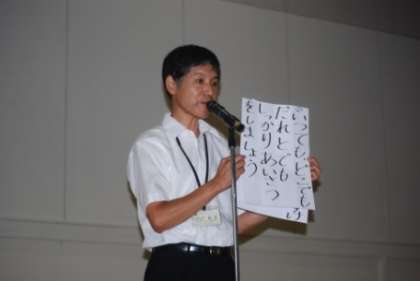 いつでも、どこでも
だれとでも
しっかりあいさつ
をしましょう